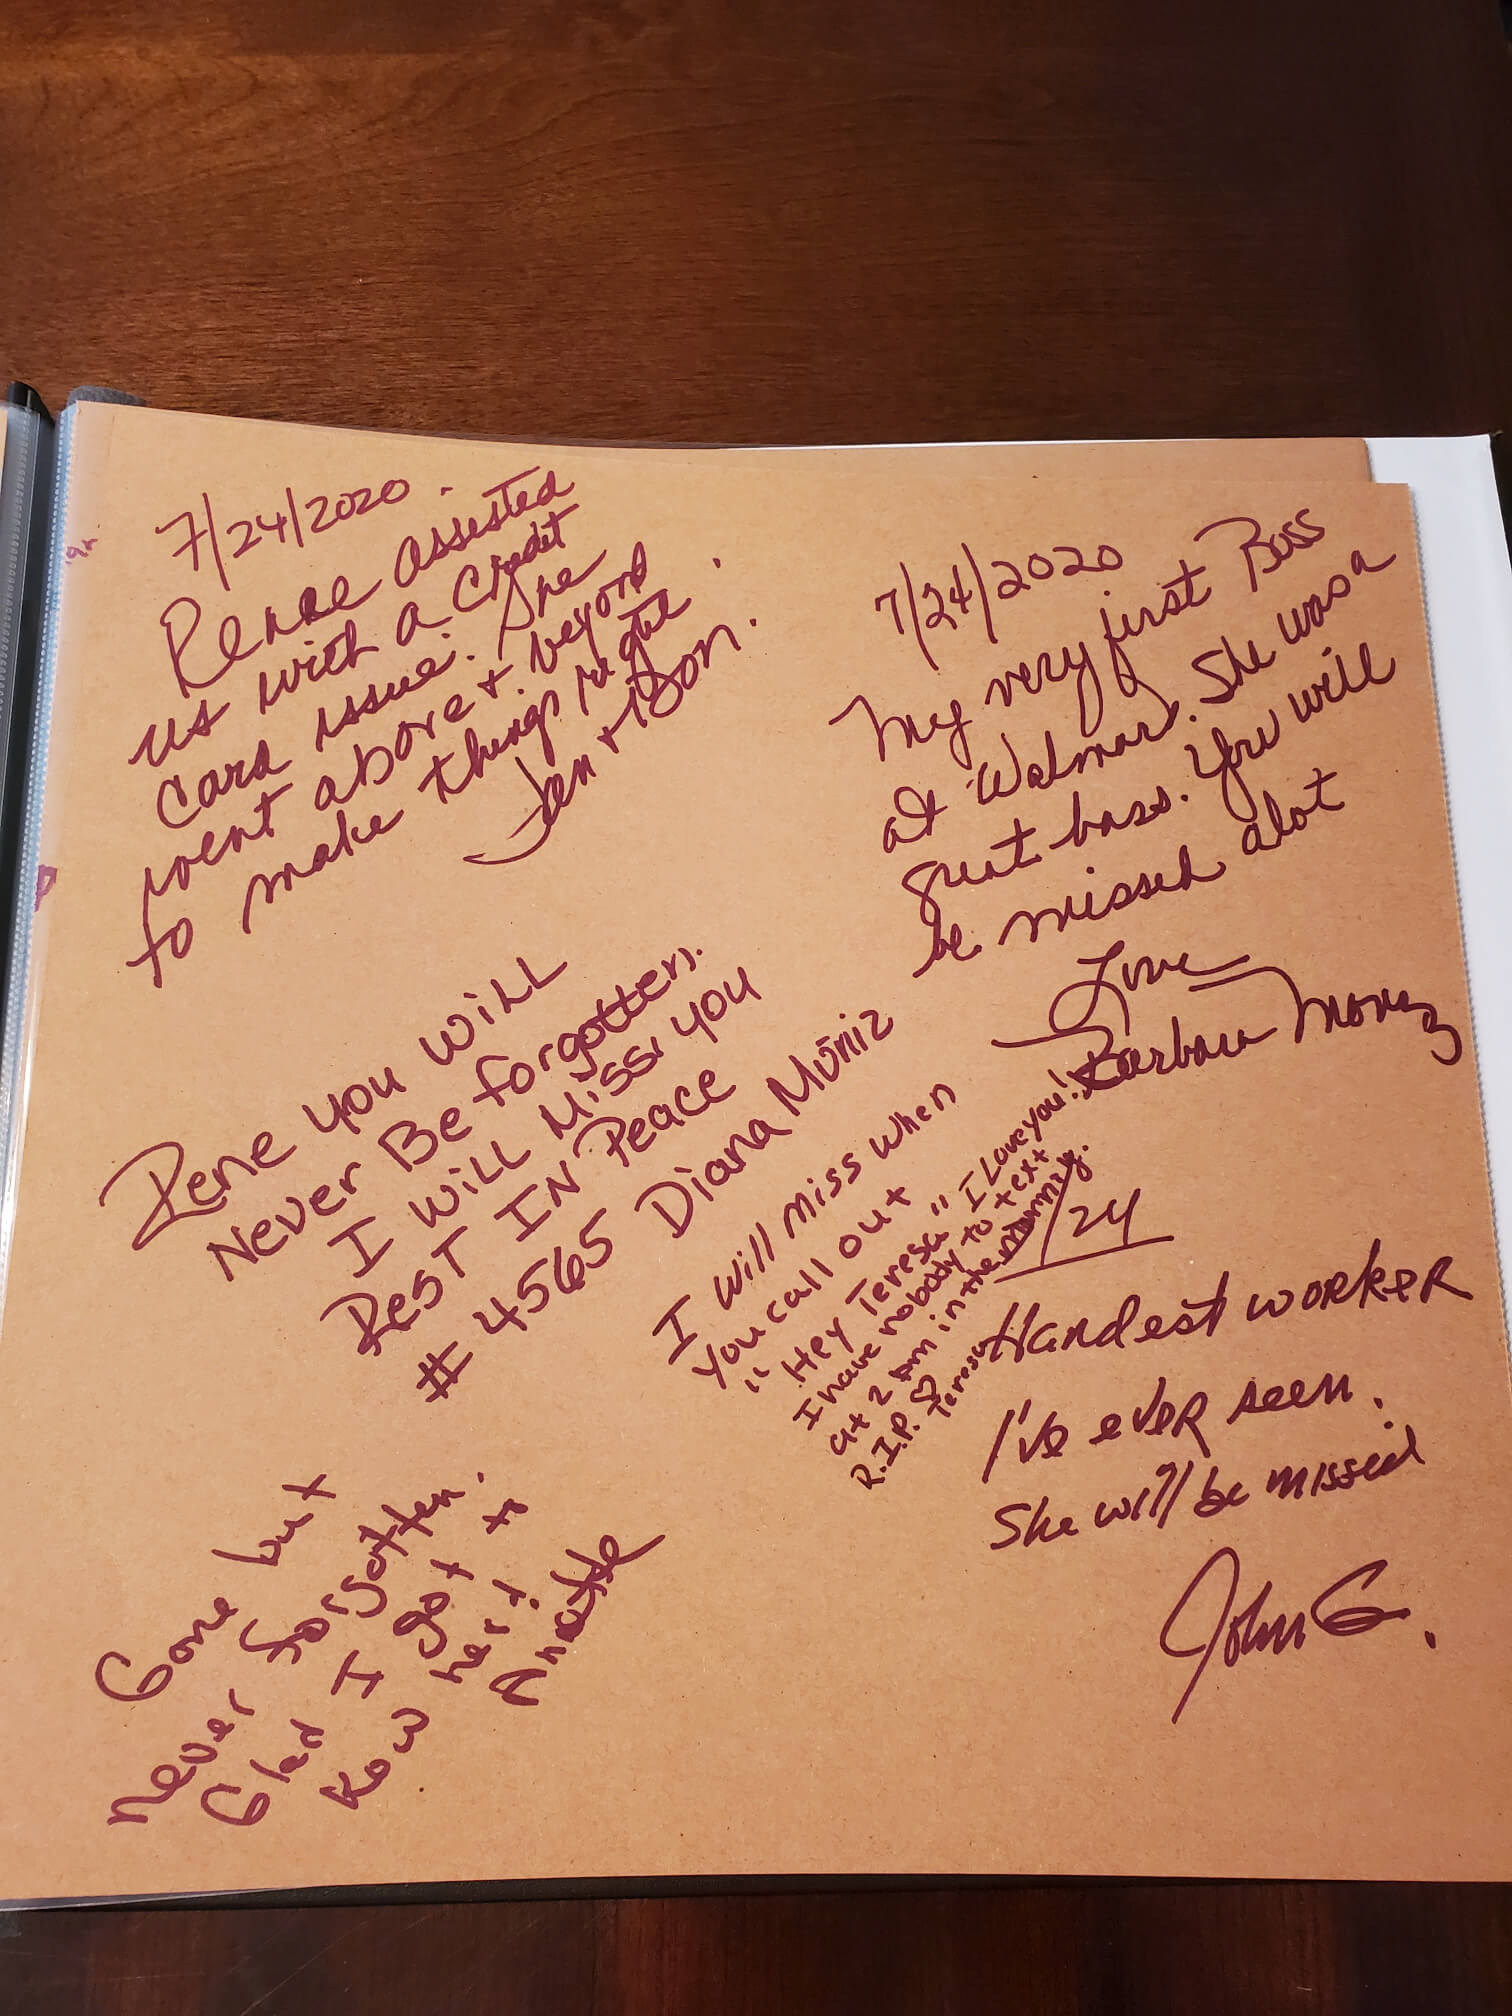 7/24/2020.
Renae assisted
us with a credit
card issue. She
went above & beyond
to make things right.
Jan & Don.
7/24/2020
My very first Boss
at Walmart. She was a
great boss. You will
be missed alot
Love
Barbara
Rene you will
Never Be forgotten.
I will Miss you
Rest IN Peace
# 4565 Diana Muniz
I will miss when
you call out
"Hey Teresa" I Love you!
I have nobody to text
at 2 am in the morning.
R.I.P. ♡ Teresa
7/24
Hardest worker
I've ever seen.
She will be missed
John G.
Gone but
never forgotten.
Glad I got to
know her!
Anette